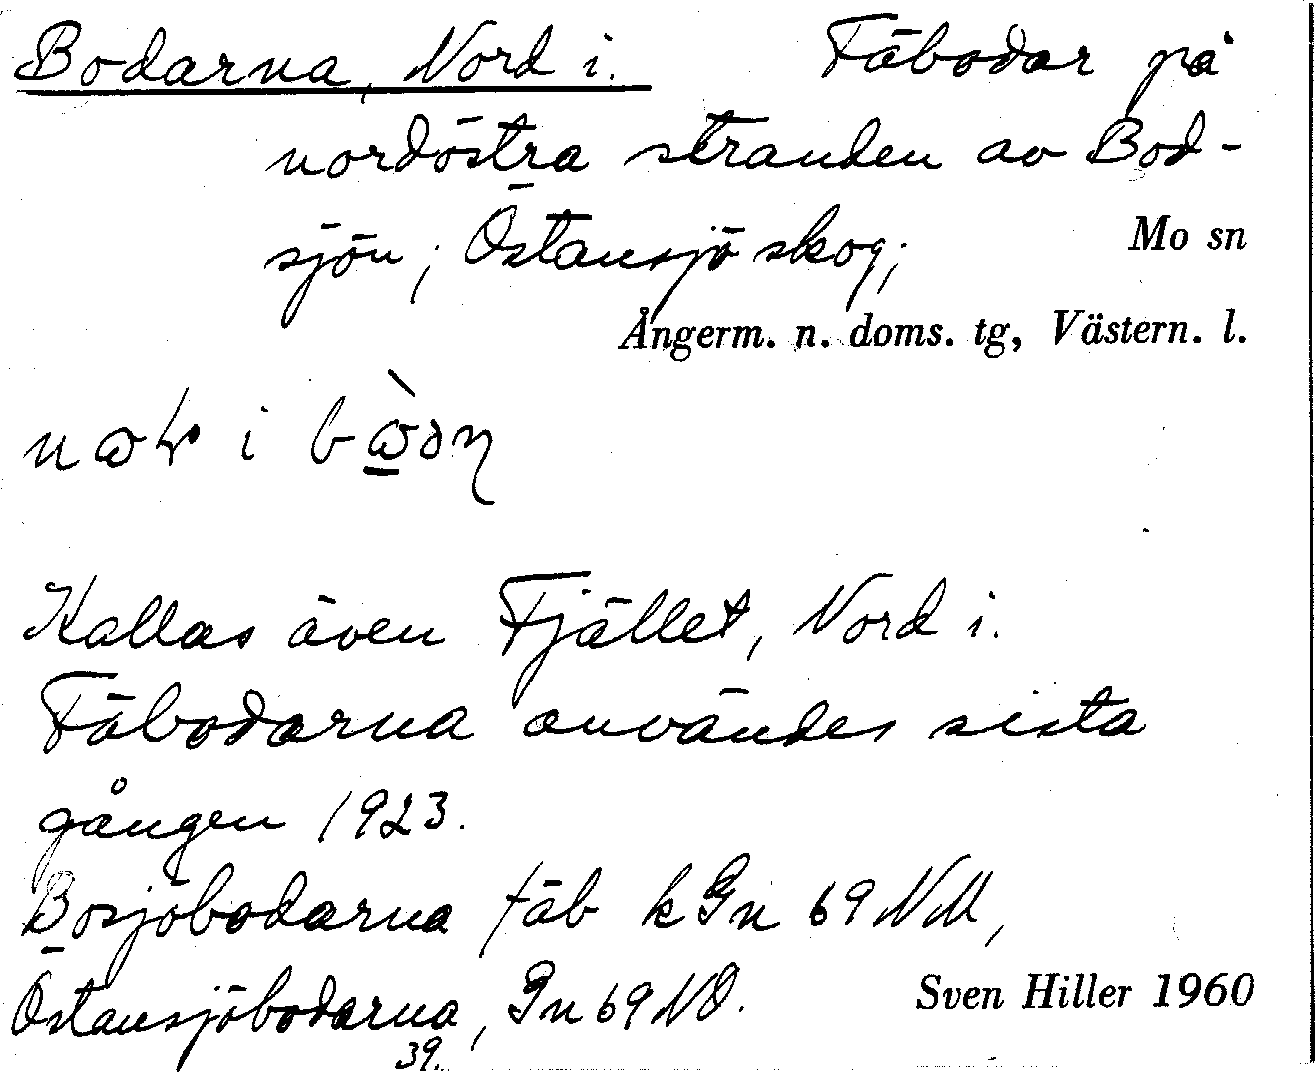 Bodarna, Nord i. Fäbodar på
nordöstra stranden av Bod-
sjön; Östansjö skog; Mo sn
Ångerm. n. doms. tg, Västern. l.
i
Kallas även Fjället, Nord i.
Fäbodarna användes sista
gången 1923.
Bosjöbodarna fäb kGn 69 NV,
Östansjöbodarna, Gn 69 NO.
Sven Hiller 1960
39.